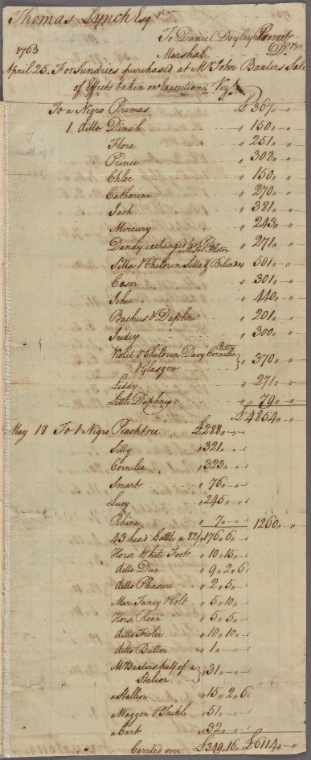 Thomas Lynch Esqr
To Daniel Doyley Provost
1763 Marshal Dr
April 25. For Sundries purchased at Mr John Baxters Sale
of Effects taken on Execution Vizt
To a Negro Primas £ 367,, -,, -
1 ditto Dinah " 150,, -
Flora " 251,, -
Prince " 302,, -
Chloe " 150,, -
Catharina " 270,, -
Jack " 381,, -
Mercury " 243,, -
Dandy exchanged " 271,, -
Silla & Children Silla & Belinda 501,, -
Caser " 301,, -
" 440,, -
Bachus & Daphne " 201,, -
" 300,, -
Violet & Children Davy Cornelia Betty
& Glasgow } " 370,, -
Liddy " 271,, -
Little Daphney " 79,, -
£ 4854,, -
May 18 To 1 Negro Peachtree £288,, -,, -
Silly " 321,, -
Cornelia " 323,, -
Smart " 76,, -
Lucy " 245,, -
Rhina " 7,, -,, - 1260,, -,, -
43 head Cattle a 82/ 176,, 6,, -
Horse White Foot " 10,, 15,, -
ditto Dun " 9,, 2,, 6
ditto " 2,, 5,, -
Mare Fancy & Colt " 5,, 10,, -
Horse " 5,, 5,, -
ditto Frolic " 10,, 10,, -
ditto Button " 1,, -,, -
Mr Baxters half of a
Stalion } " 31,, -,, -
a Stallion " 15,, 2,, 6
Waggon & Tackle " 51,, -
a Cart " 32,, -
Carried over £349,, 16,, - £6114,, -,, -